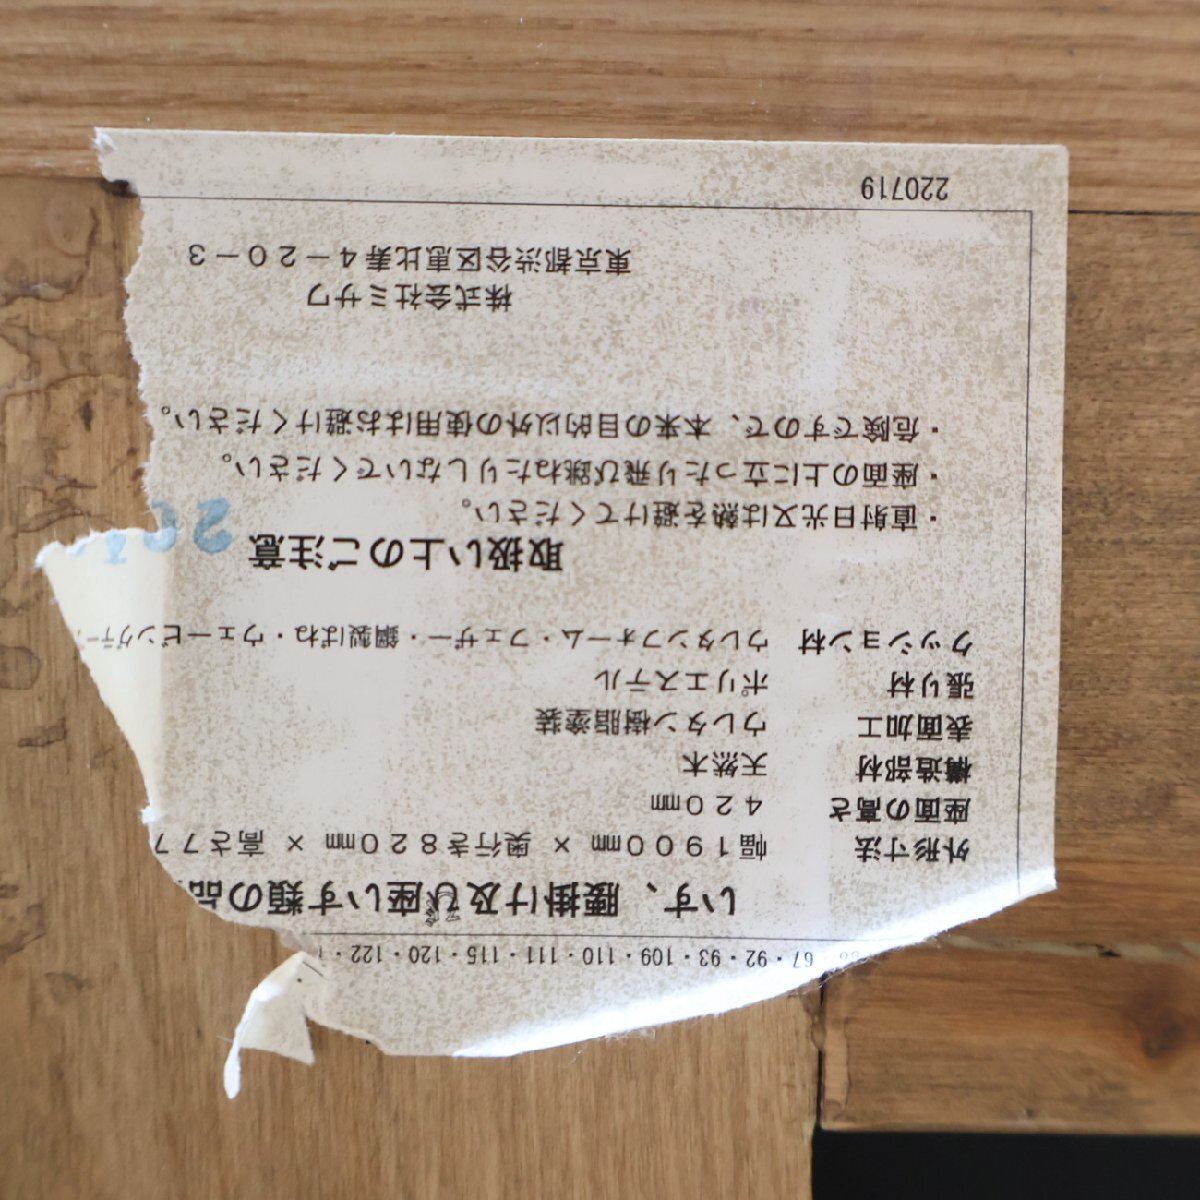 67・92・93・109・110・111・115・120・122・
いす、腰掛け及び座いす類の品
外形寸法 幅1900㎜ × 奥行き820㎜ × 高さ77
座面の高さ 420㎜
構造部材 天然木
表面加工 ウレタン樹脂塗装
張り材 ポリエステル
クッション材 ウレタンフォーム・フェザー・鋼製ばね・ウェービングテー
取扱い上のご注意
・直射日光又は熱を避けてください。
・座面の上に立ったり飛び跳ねたりしないでください。
・危険ですので、本来の目的以外の使用はお避けください。
株式会社ミサワ
東京都渋谷区恵比寿4－20－3
220719